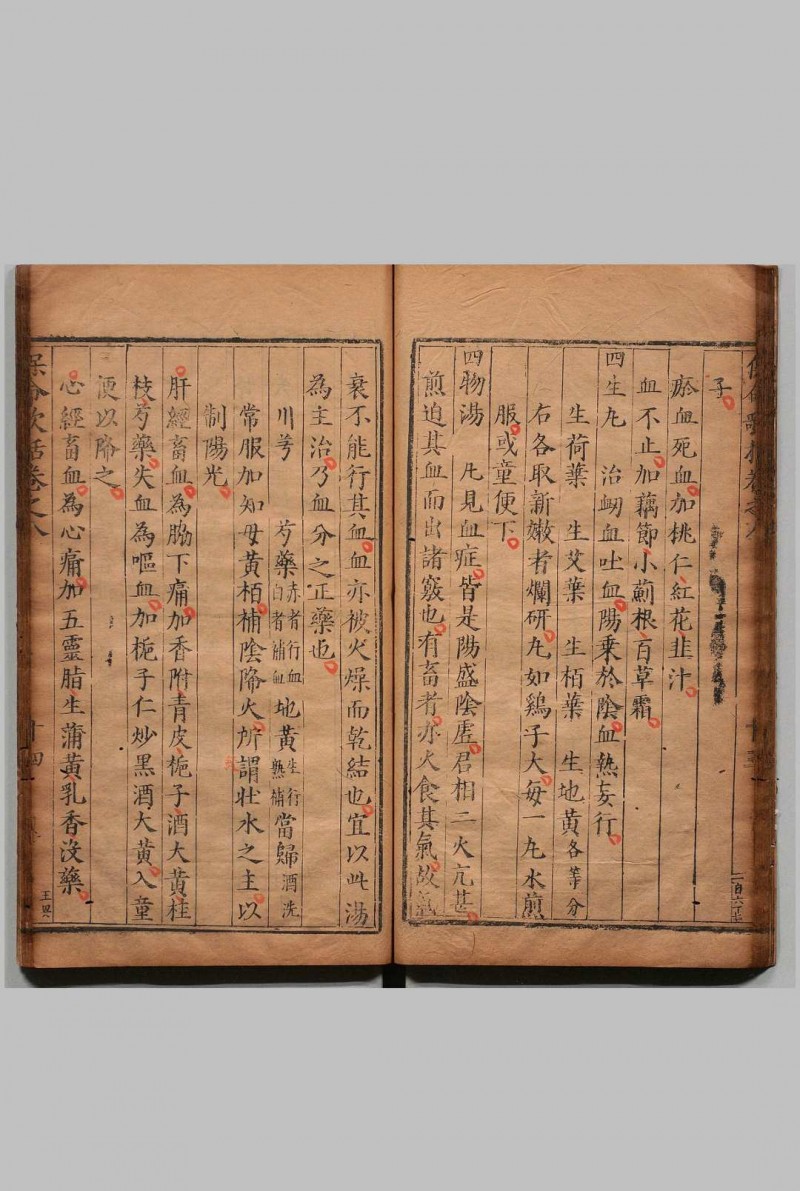 子
瘀血死血加桃仁紅花韭汁
血不止加藕節小薊根百草霜
四生丸　治衂血吐血陽乗於陰血熱妄行
生荷葉　生艾葉　生栢葉　生地黄各等分
右各取新嫩者爛研丸如鷄子大每一丸水煎
服或童便下
四物湯　凡見血症皆是陽盛陰虛君相二火亢甚
煎迫其血而出諸竅也有畜者亦火食其氣故氣
衰不能行其血血亦被火燥而乾結也宜以此湯
為主治乃血分之正藥也
川芎　芍藥赤者行血白者補血地黄生行熟補當歸酒洗
常服加知母黄栢補陰降火所謂壮水之主以
制陽光
肝經畜血為脇下痛加香附青皮梔子酒大黄桂
枝芍藥失血為嘔血加梔子仁炒黒酒大黄入童
便以降之
心經畜血為心痛加五靈脂生蒲黄乳香沒藥
卷之八
十四